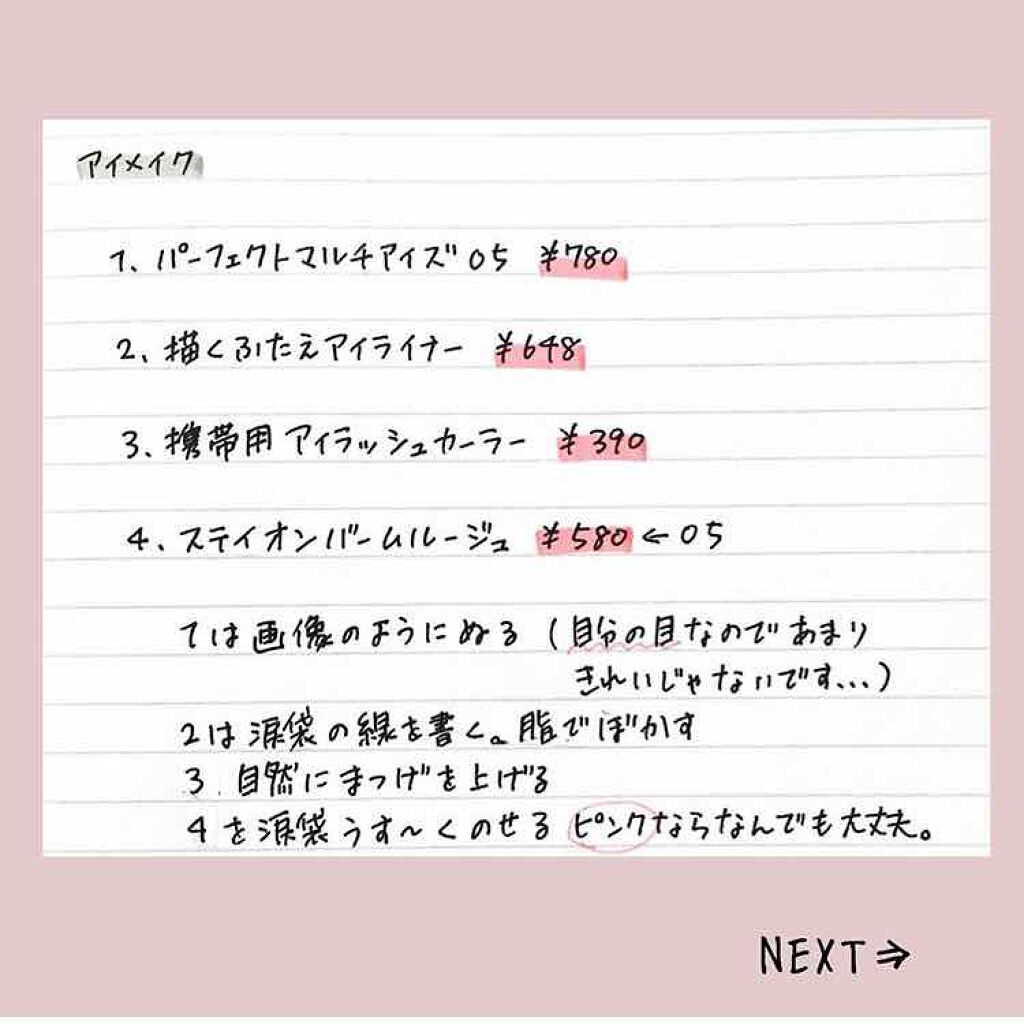 アイメイク
1、パーフェクトマルチアイズ 05 ¥780
2、描くふたえアイライナー ¥648
3、携帯用 アイラッシュカーラー ¥390
4、ステイオンバームルージュ ¥580 ← 05
1は画像のようにぬる (自分の目なのであまり
きれいじゃないです...)
2は涙袋の線を書く。脂でぼかす
3. 自然にまつげを上げる
4を涙袋うす〜くのせる ピンクならなんでも大丈夫。
NEXT⇒